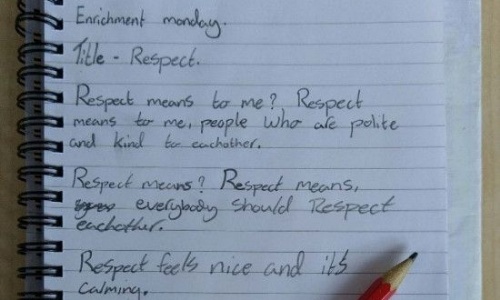 Enrichment monday.
Title - Respect.
Respect means to me? Respect
means to me, people who are polite
and kind to eachother.
Respect means? Respect means,
everybody should Respect
eachother.
Respect feels nice and it's
calming.